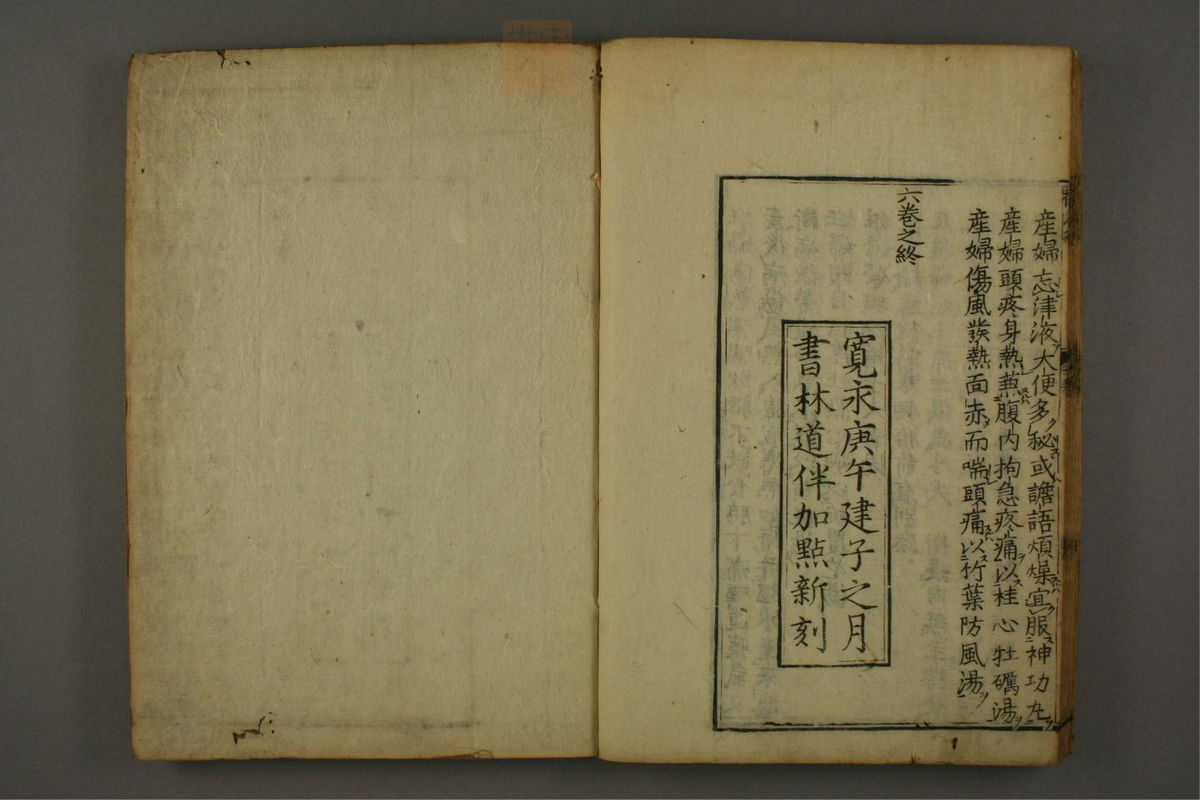 産婦忘津液大便多秘或譫語煩燥宜服神功丸
産婦頭疼身熱兼腹内拘急疼痛以桂心牡礪湯
産婦傷風發熱面赤而喘頭痛以竹葉防風湯
六卷之終
寛永庚午建子之月
書林道伴加點新刻